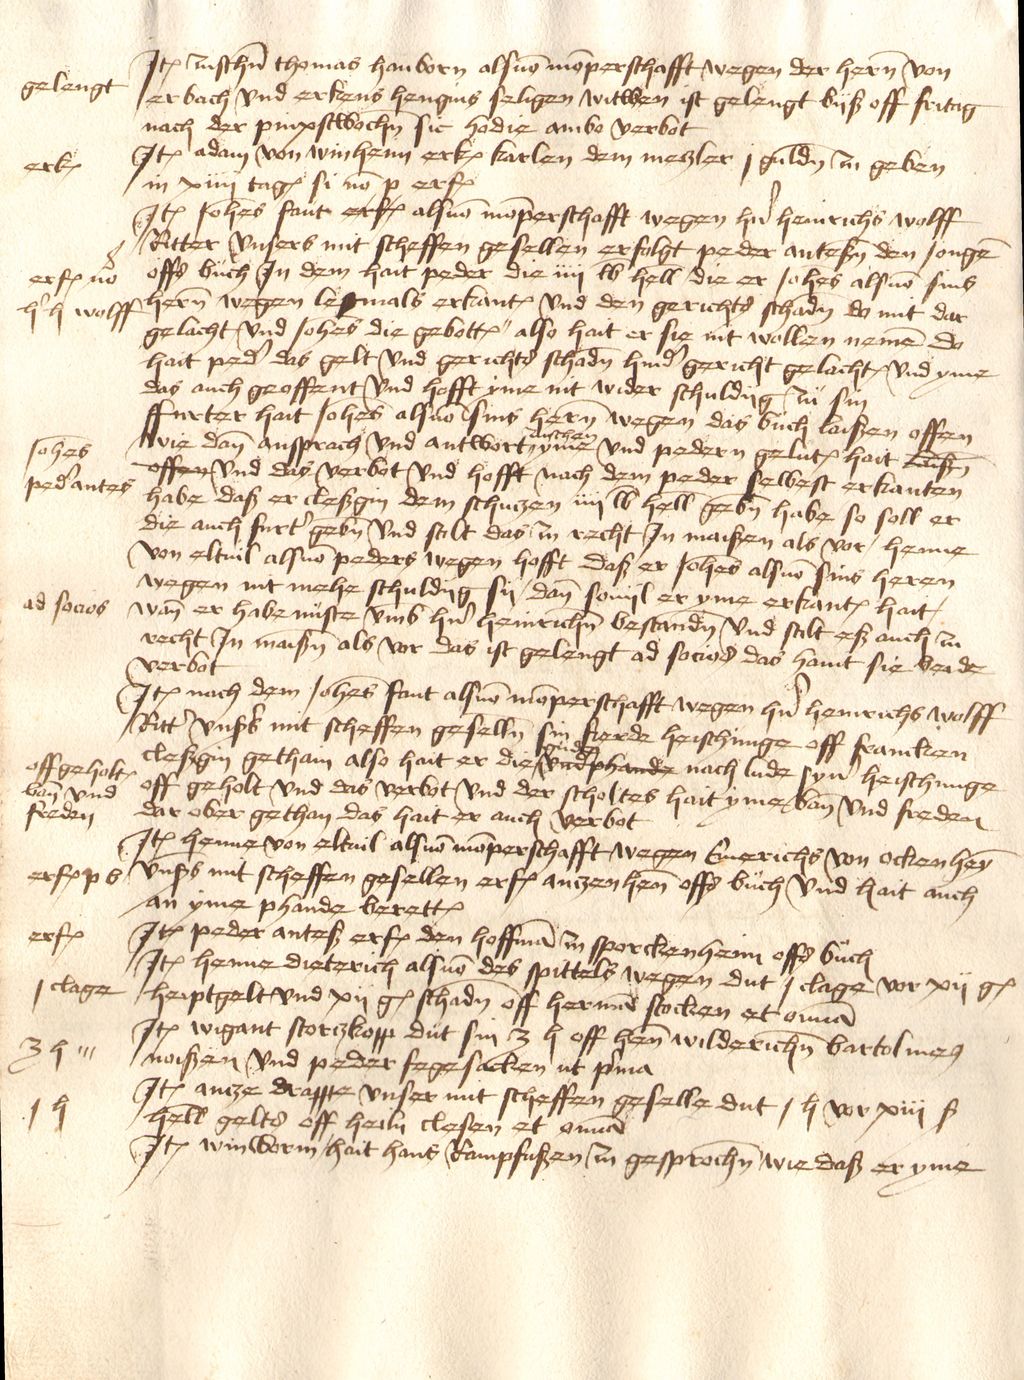 Jt zuschn thomas hanborn alsuo momperschafft wegen der hern von
gelengt
erbach vnd erkens hengins seligen witwen ist gelengt biß off fritag
nach der pinxstwochn sic hodie ambo verbot
erk
Jt adam von winheim erk karlen dem meczler j guldn zu geben
in xiiij tag si no p erf
Jt Johes fant erf alsuo momperschafft wegen hr heinrichs wolff
Ritter vnsers mit scheffen gesellen erfolgt peder anteßn den Jonge
erf no
offs buch Jn dem hait peder die iiij lb hell die er Johes alsuo sins
h h wolff
hern wegen lestmals erkant vnd den gerichts schadn do mit dar
gelacht vnd Johes die gebott also hait er sie nit wollen neme do
hait ped das gelt vnd gerichts schadn hind gericht gelacht vnd yme
das auch geoffent vnd hofft yme nit wider schuldig zu sin
ffurter hait Johes alsuo sins hern wegen das buch laißen offen
Johes
wie dan ansprach vnd antwort zuschen yme vnd pedern gelut hait laißn
ped antes
offen vnd das verbot vnd hofft nach dem peder selbest erkanten
habe daß er cleßgin dem schuczen iiij lb hell gebn habe so soll er
die auch furt gebn vnd stilt das zu recht Jn maißen als vor / henne
von eltuil alsuo peders wegen hofft daß er Johes alsuo sins heren
wegen nit mehe schuldig sij / dan souijl er yme erkant hait /
ad socios
wan er habe nuste vmb hr heinrichn bestandn vnd stilt eß auch zu
recht Jn maißn als vor das ist gelengt ad socios das hant sie beide
verbot
Jt nach dem Johes fant alsuo momperschafft wegen hr heinrichs wolff
Ritt vnßs mit scheffen geselln sin fierde heischunge off francken
cleßgin gethain also hait er die gude vnd phande nach lude syn heischunge
offgeholt
off geholt vnd das verbot vnd der scholtes hait yme ban vnd freden
ban vnd
freden
dar ober gethan das hait er auch verbot
Jt henne von eltuil alsuo momperschafft wegen Emerichs von ockenhey
erf p b
vnßs mit scheffen gesellen erf anczen hen offs buch vnd hait auch
an yme phande berett
erf
Jt peder anteß erf den hoffma zu sporckenheim offs buch
Jt henne dieterich alsuo des spittels wegen dut j clage vor xij g
j clage
heiptgelt vnd xij g schadn off herma stocken et omia
Jt wigant storczkopp dut sin 3 h off hen wilderichn bartolmes
3 h
noißen vnd peder fegesacken ut pma
Jt ancze drappe vnser mit scheffen geselle dut j h vor xiij ß
j h
hell gelts off heiln clesen et omia
Jt winworm hait hans kampfußen zu gesprochn wie daß er yme